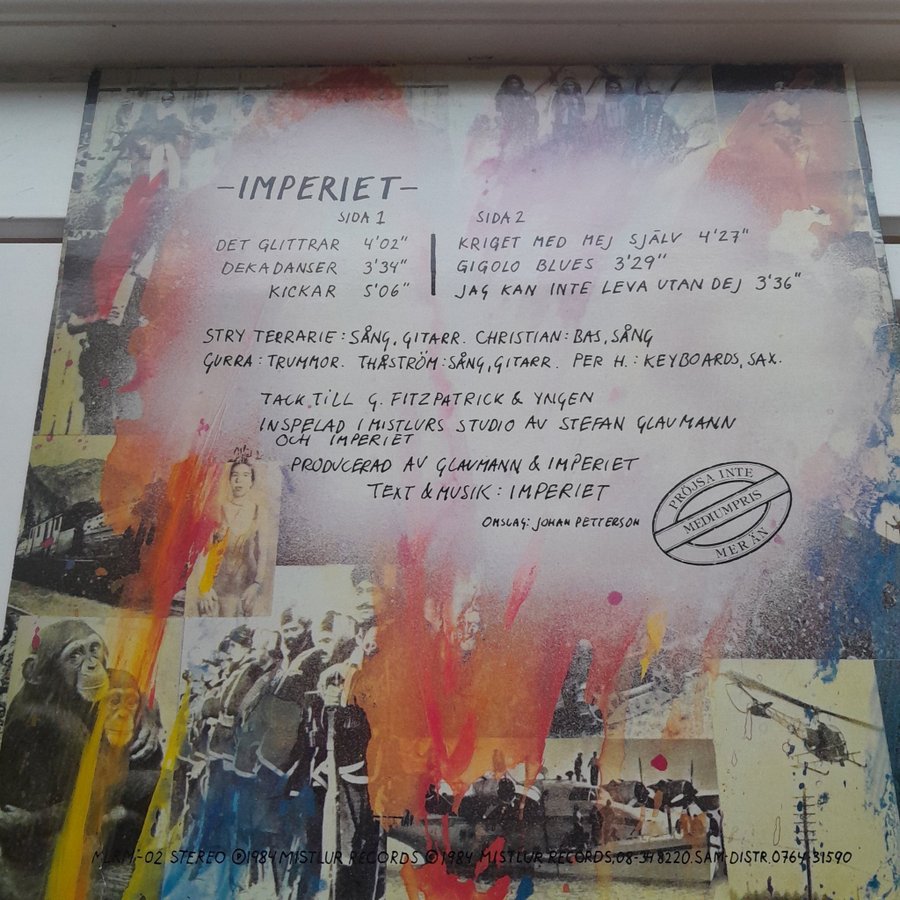 -IMPERIET-
SIDA 1
DET GLITTRAR 4'02"
DEKADANSER 3'34"
KICKAR 5'06"
SIDA 2
KRIGET MED MEJ SJÄLV 4'27"
GIGOLO BLUES 3'29"
JAG KAN INTE LEVA UTAN DEJ 3'36"
STRY TERRARIE: SÅNG, GITARR. CHRISTIAN: BAS, SÅNG
GURRA: TRUMMOR. THÅSTRÖM: SÅNG, GITARR. PER H.: KEYBOARDS, SAX.
TACK TILL G. FITZPATRICK & YNGEN
INSPELAD I MISTLURS STUDIO AV STEFAN GLAUMANN
OCH IMPERIET
PRODUCERAD AV GLAUMANN & IMPERIET
TEXT & MUSIK: IMPERIET
OMSLAG: JOHAN PETTERSON
PRÖJSA INTE
MEDIUMPRIS
MER ÄN
MLRM-02 STEREO Ⓟ1984 MISTLUR RECORDS ©1984 MISTLUR RECORDS. 08-348220. SAM-DISTR. 0764-31590